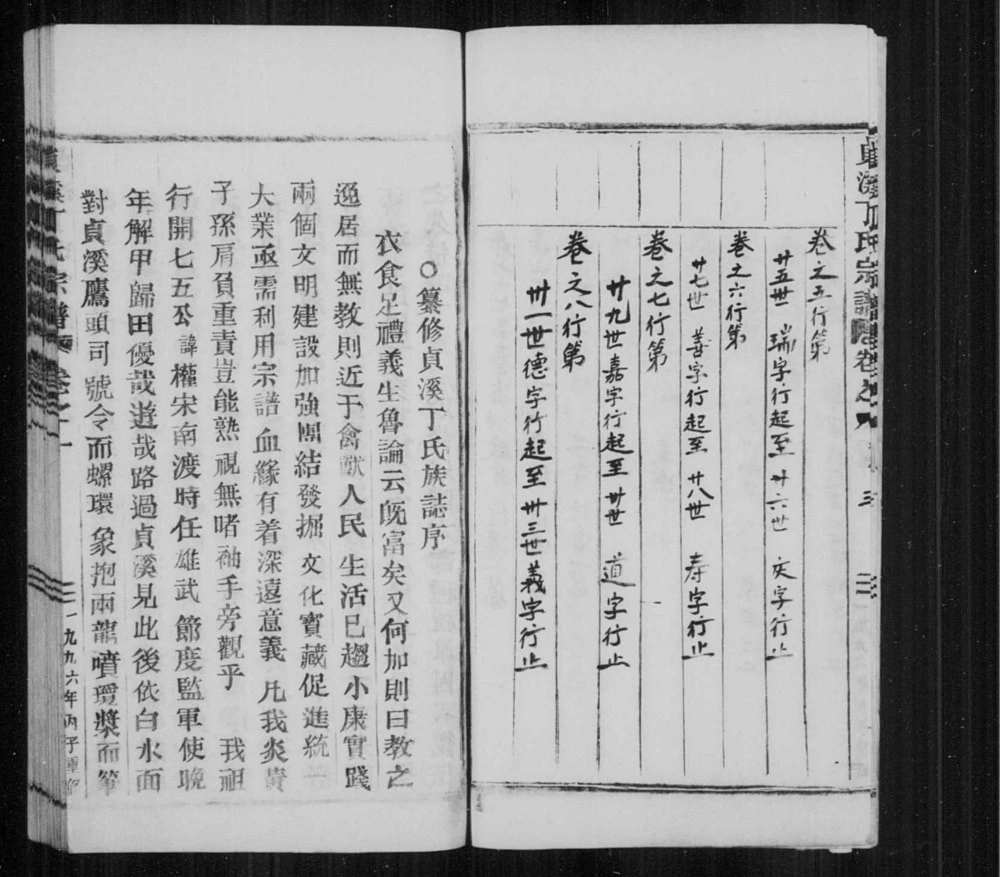 貞溪丁氏宗譜 卷之
卷之五行第
廿五世 瑞字行起至 廿六世 灰字行止
卷之六行第
廿七世 善字行起至 廿八世 寿字行止
卷之七行第
廿九世嘉字行起至 卅世 道字行止
卷之八行第
卅一世德字行起至 卅三世義字行止
○纂修貞溪丁氏族誌序
衣食足禮義生魯論云既富矣又何加則曰教之
逸居而無教則近于禽獸人民生活已趨小康實踐
兩個文明建設加強團結發掘文化寶藏促進統
大業亟需利用宗譜血緣有着深遠意義凡我炎黃
子孫肩負重責豈能熟視無睹袖手旁觀乎 我祖
行開七五公諱權宋南渡時任雄武節度監軍使晚
年解甲歸田優哉遊哉路過貞溪見此後依白水面
對貞溪鷹頭司號令而螺環象抱兩龍噴瓊漿而筆
丁氏宗譜 卷之
一九九六年丙子重